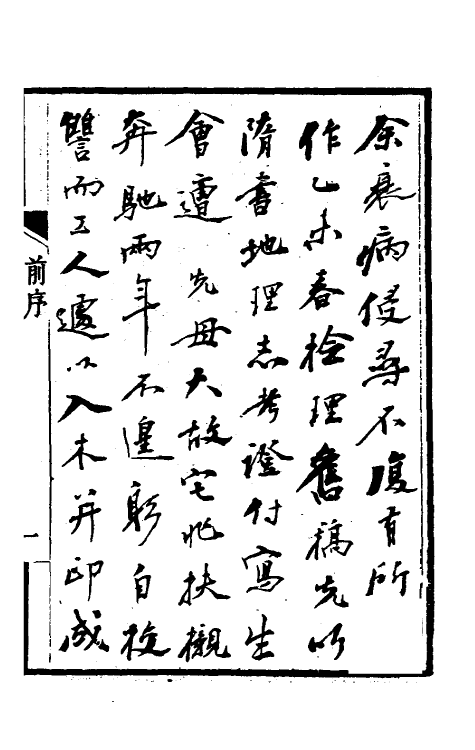 余衰病侵尋不復有所
作乙未春檢理舊稿先以
隋書地理志考證付寫生
會遭先母大故宅兆扶櫬
奔馳兩年不遑躬自校
讐而工人遽以入木并印成
前序
一